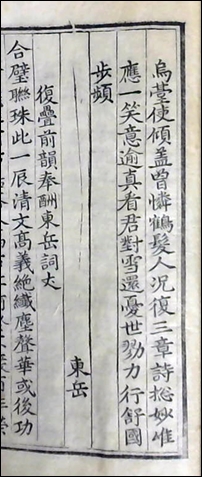 烏䑓使傾盖曾憐鶴髮人況復三章詩捴妙惟
應一笑意逾真看君對雪還憂世勠力行舒國
步頻
東岳
復疊前韻奉酬東岳詞丈
合璧聯珠此一辰清文高義絶纖塵聲華或後功